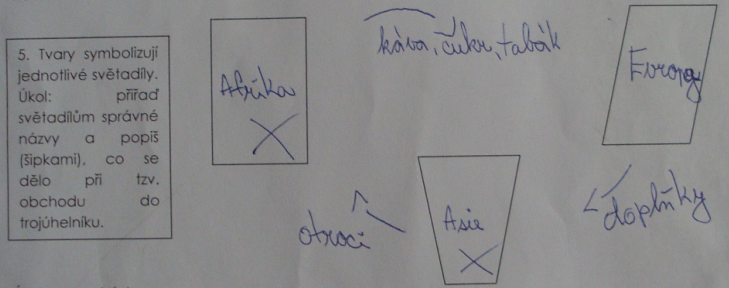 5. Tvary symbolizují
jednotlivé světadíly.
Úkol: přiřaď
světadílům správné
názvy a popiš
(šipkami), co se
dělo při tzv.
obchodu do
trojúhelníku.
Afrika
káva, čukr, tabák
Evropy
otroci
Asie
doplňky